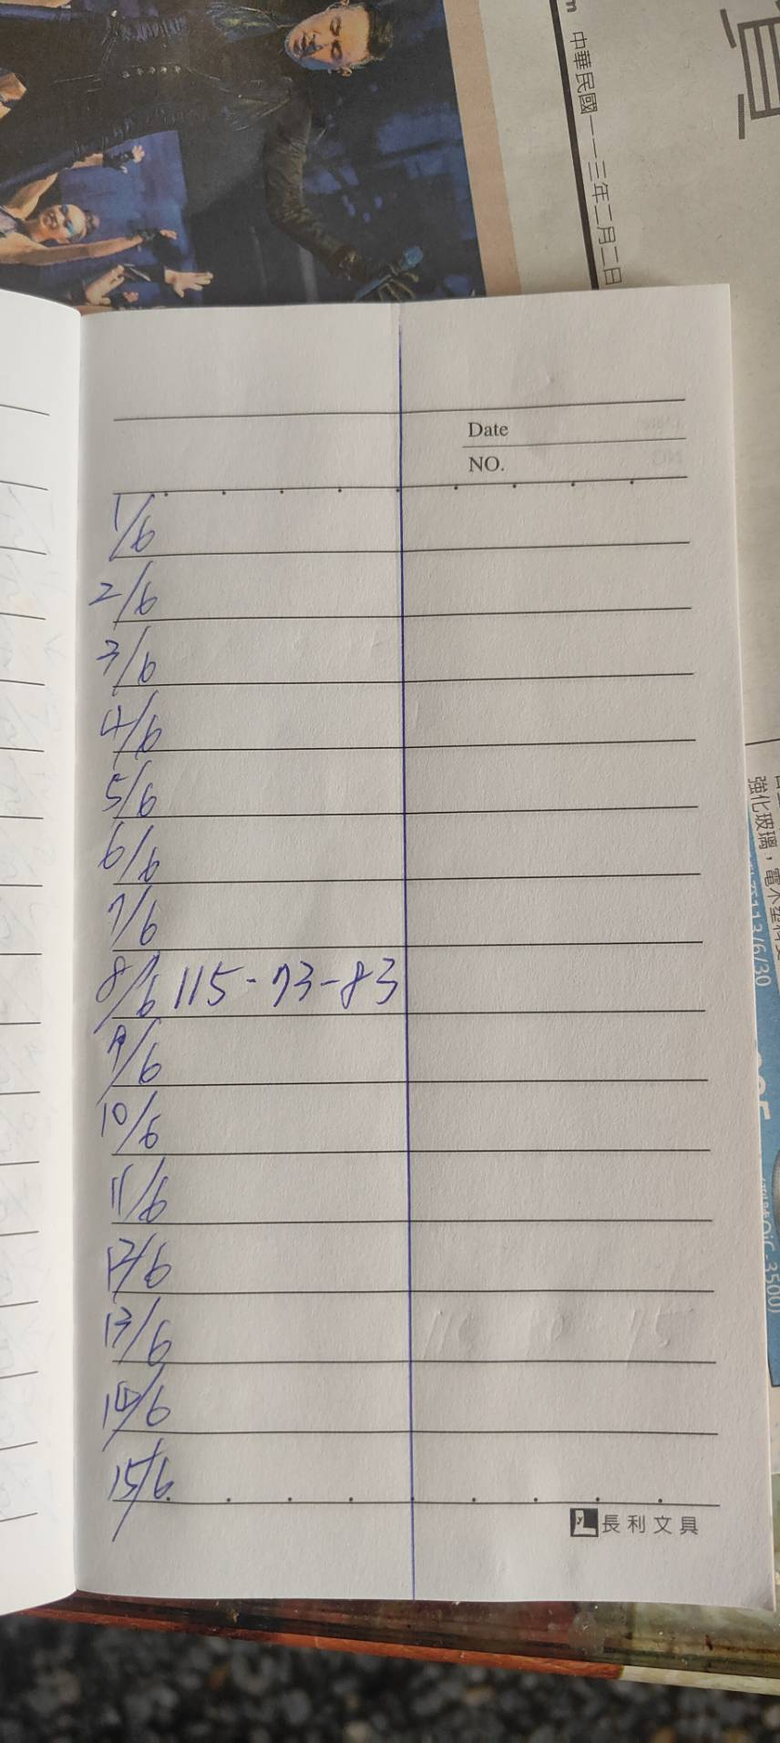 中華民國一一三年二月二日
Date
NO.
1/6
2/6
3/6
4/6
5/6
6/6
7/6
8/6 115-73-83
9/6
10/6
11/6
12/6
13/6
14/6
15/6
長利文具
強化玻璃，電木塑料
113/6/30
3500)